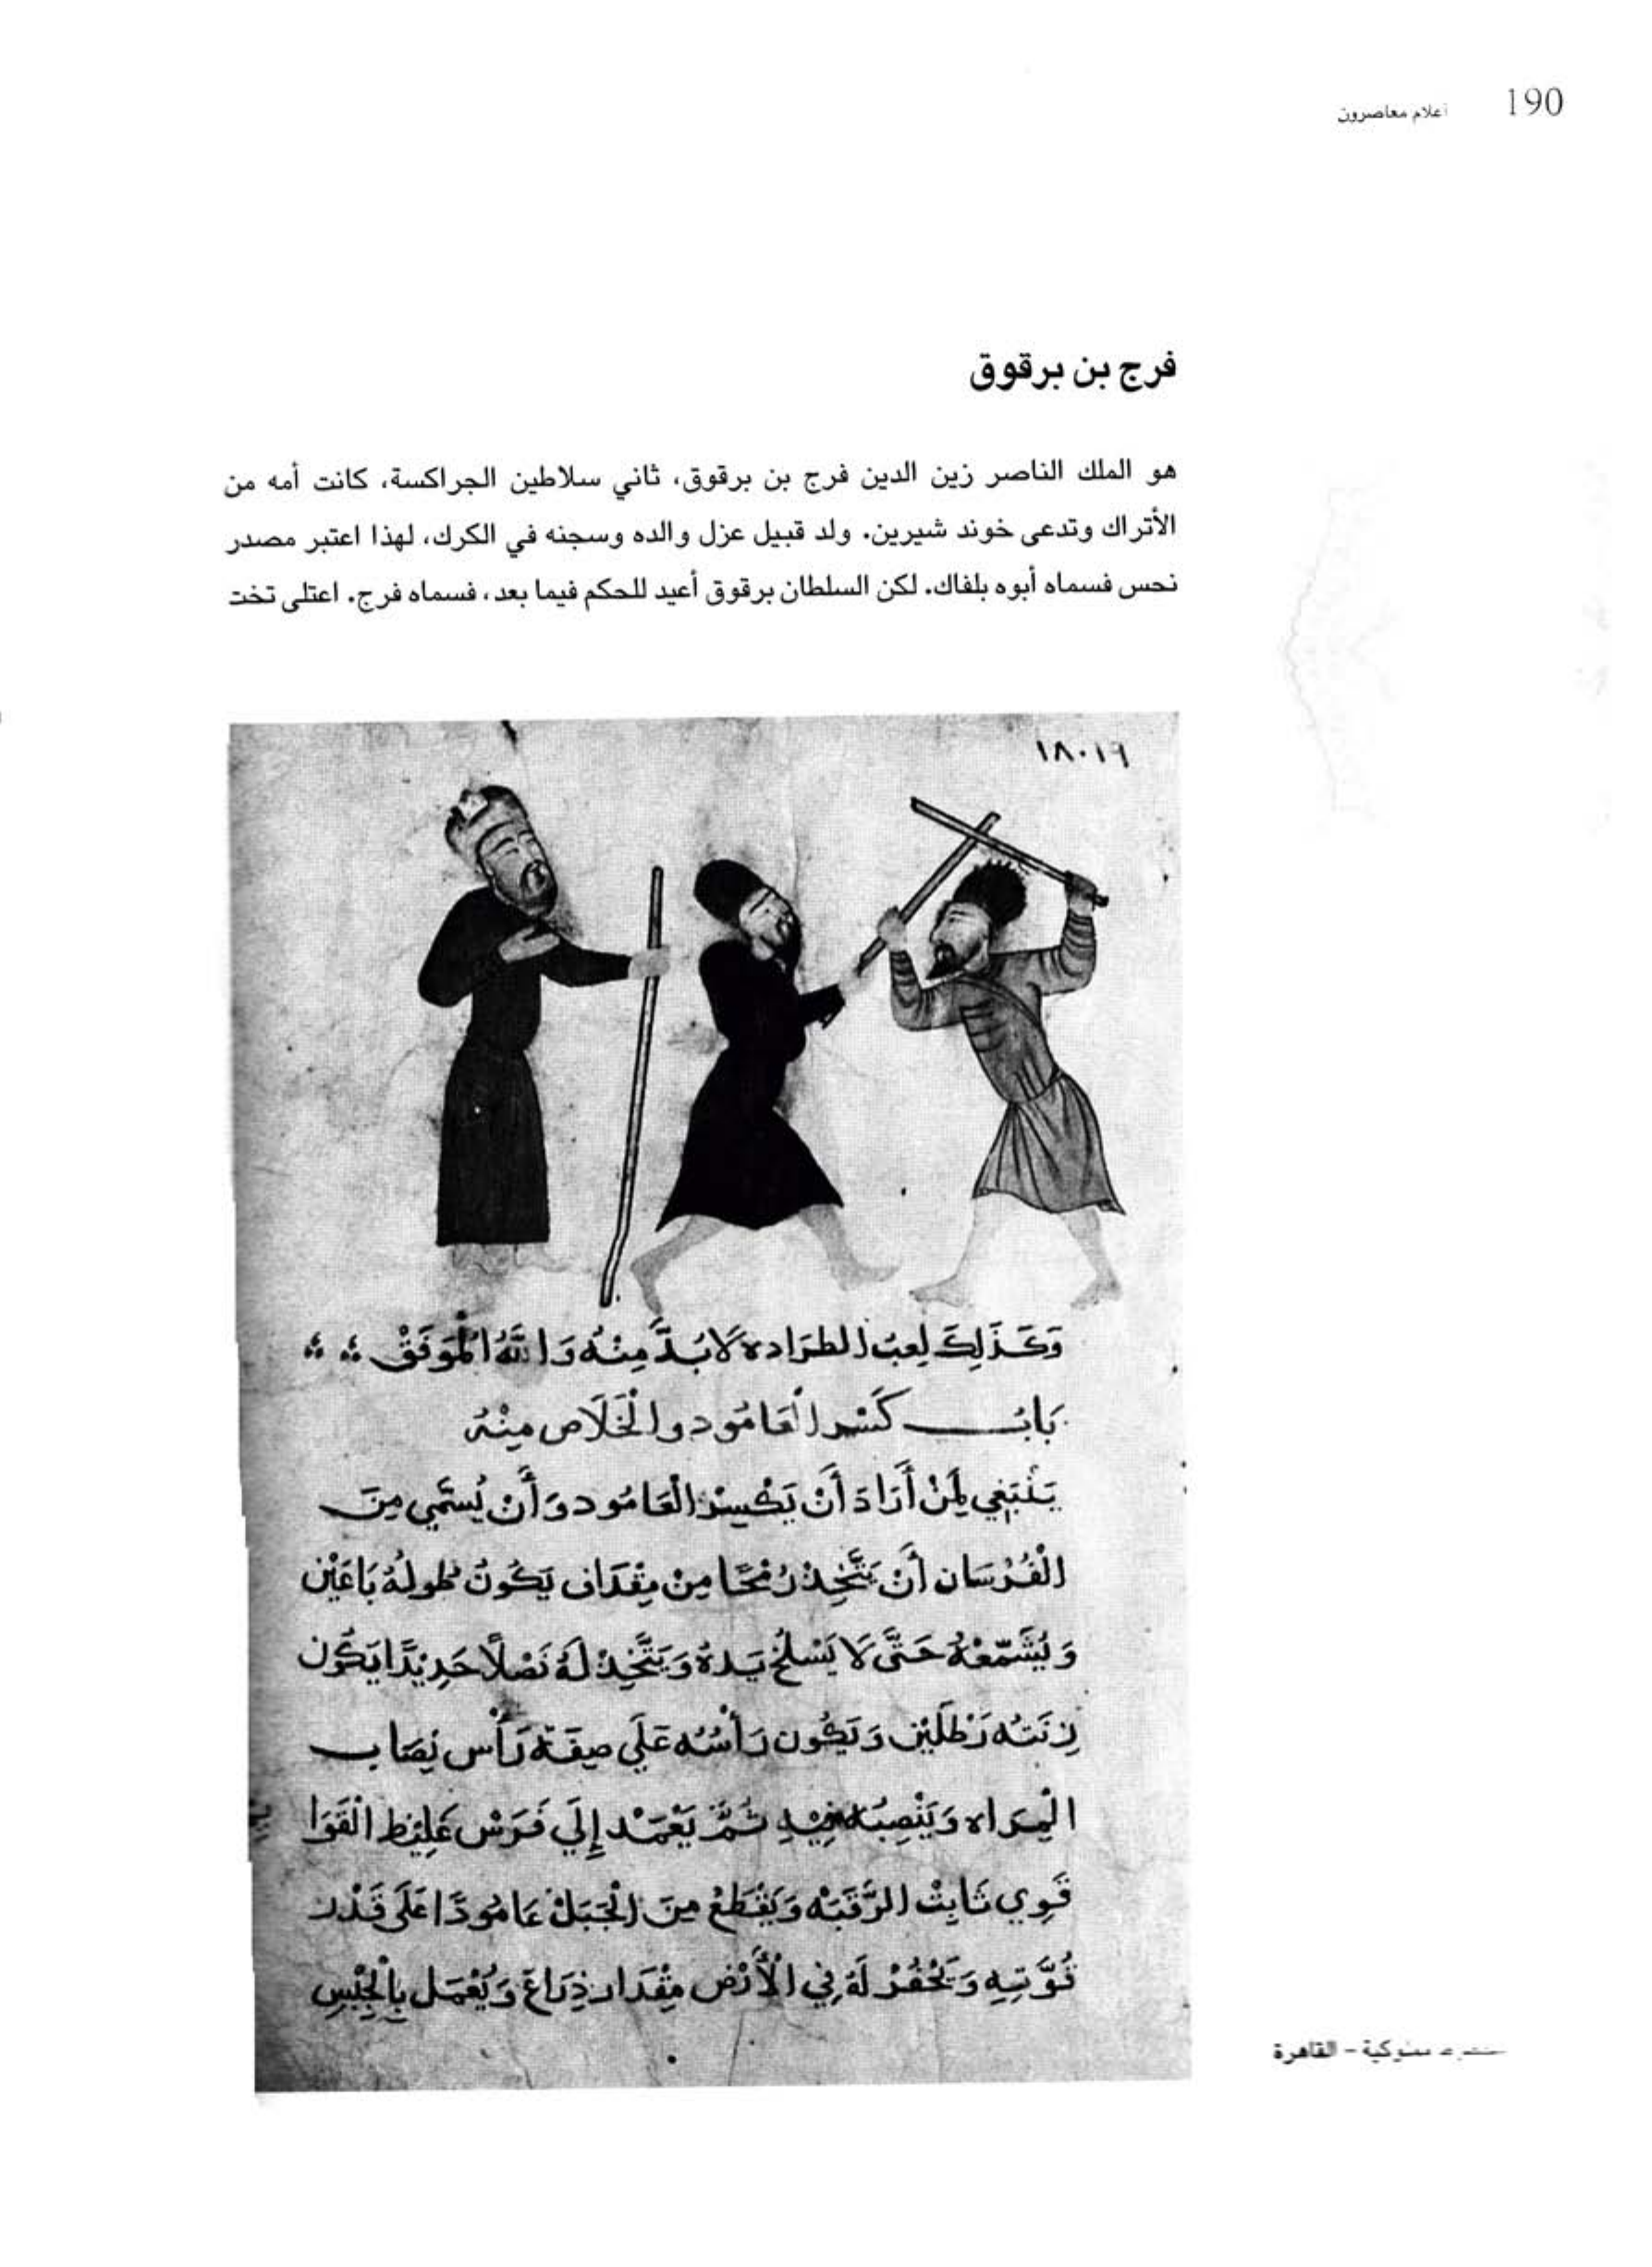 190
أعلام معاصرون
فرج بن برقوق
هو الملك الناصر زين الدين فرج بن برقوق، ثاني سلاطين الجراكسة، كانت أمه من
الأتراك وتدعى خوند شيرين. ولد قبيل عزل والده وسجنه في الكرك، لهذا اعتبر مصدر
نحس فسماه أبوه بلفاك. لكن السلطان برقوق أعيد للحكم فيما بعد، فسماه فرج. اعتلى تخت
١٨٠١٩
وَكَذَلِكَ لِعبُ الطرَاده لَابُدَّ مِنْهُ وَاللَّهُ الْمُوَفَقْ
بَابُ كَسْرِ الْعَامُود والْخَلَاص مِنْهُ
يَنْبَغِي لِمَنْ أَرَادَ أَنْ يَكْسِرْ الْعَامُود وَأَنْ يُسَمَّي مِنَ
الْفُرْسَان أَنْ يَتَّخِذْ رُمْحًا مِنْ مِقْدَاف يَكُونُ طُولهُ بَاعَيْن
وَيُشَمّعْهُ حَتَّى لَا يَسْلخْ يَدهُ وَيَتَّخِذْ لَهُ نَصْلًا حَدِيْدًا يَكُون
زِنَتُه رَطْلَيْن وَيَكُون رَأْسُه عَلَي صِفَة رَأْس نِصَاب
الْمِرَاه وَيَنْصِبُه فِيْهِ ثُمَّ يَعْمَدْ إِلَي فَرَسْ غَلِيْظ الْقَوَا
قَوِي ثَابِتْ الرَّقَبَهْ وَيَقْطَعْ مِنَ الْجَبَلْ عَامُودًا عَلَى قَدْر
قُوَّتِهِ وَيَحْفُرْ لَهُ فِي الْأَرْض مِقْدَار ذِرَاعْ وَيُعْمَل بِالْجِبْسِ
مملوكية - القاهرة